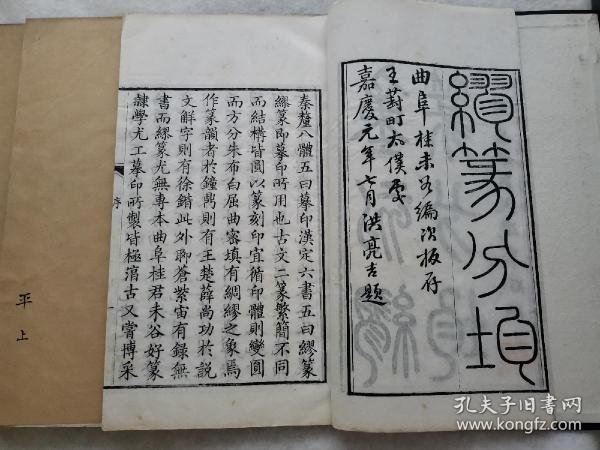 繆篆分韻
曲阜桂未谷編次板存
嘉慶元年七月洪亮吉題
秦釐八體五曰摹印漢定六書五曰繆篆
繆篆即摹印所用也古文二篆繁簡不同
而結構皆圓以篆刻印宜循印體則變圓
而方分朱布白屈曲審填有綢繆之象焉
作篆韻者於鐘鼎則有王楚薛尚功於說
文解字則有徐鍇此外聊蒼紫宙有録無
書而繆篆尤無專本曲阜桂君未谷好篆
隸學尤工摹印所製皆極澹古又嘗博采
序
平上
孔夫子旧书网
www.kongfz.com